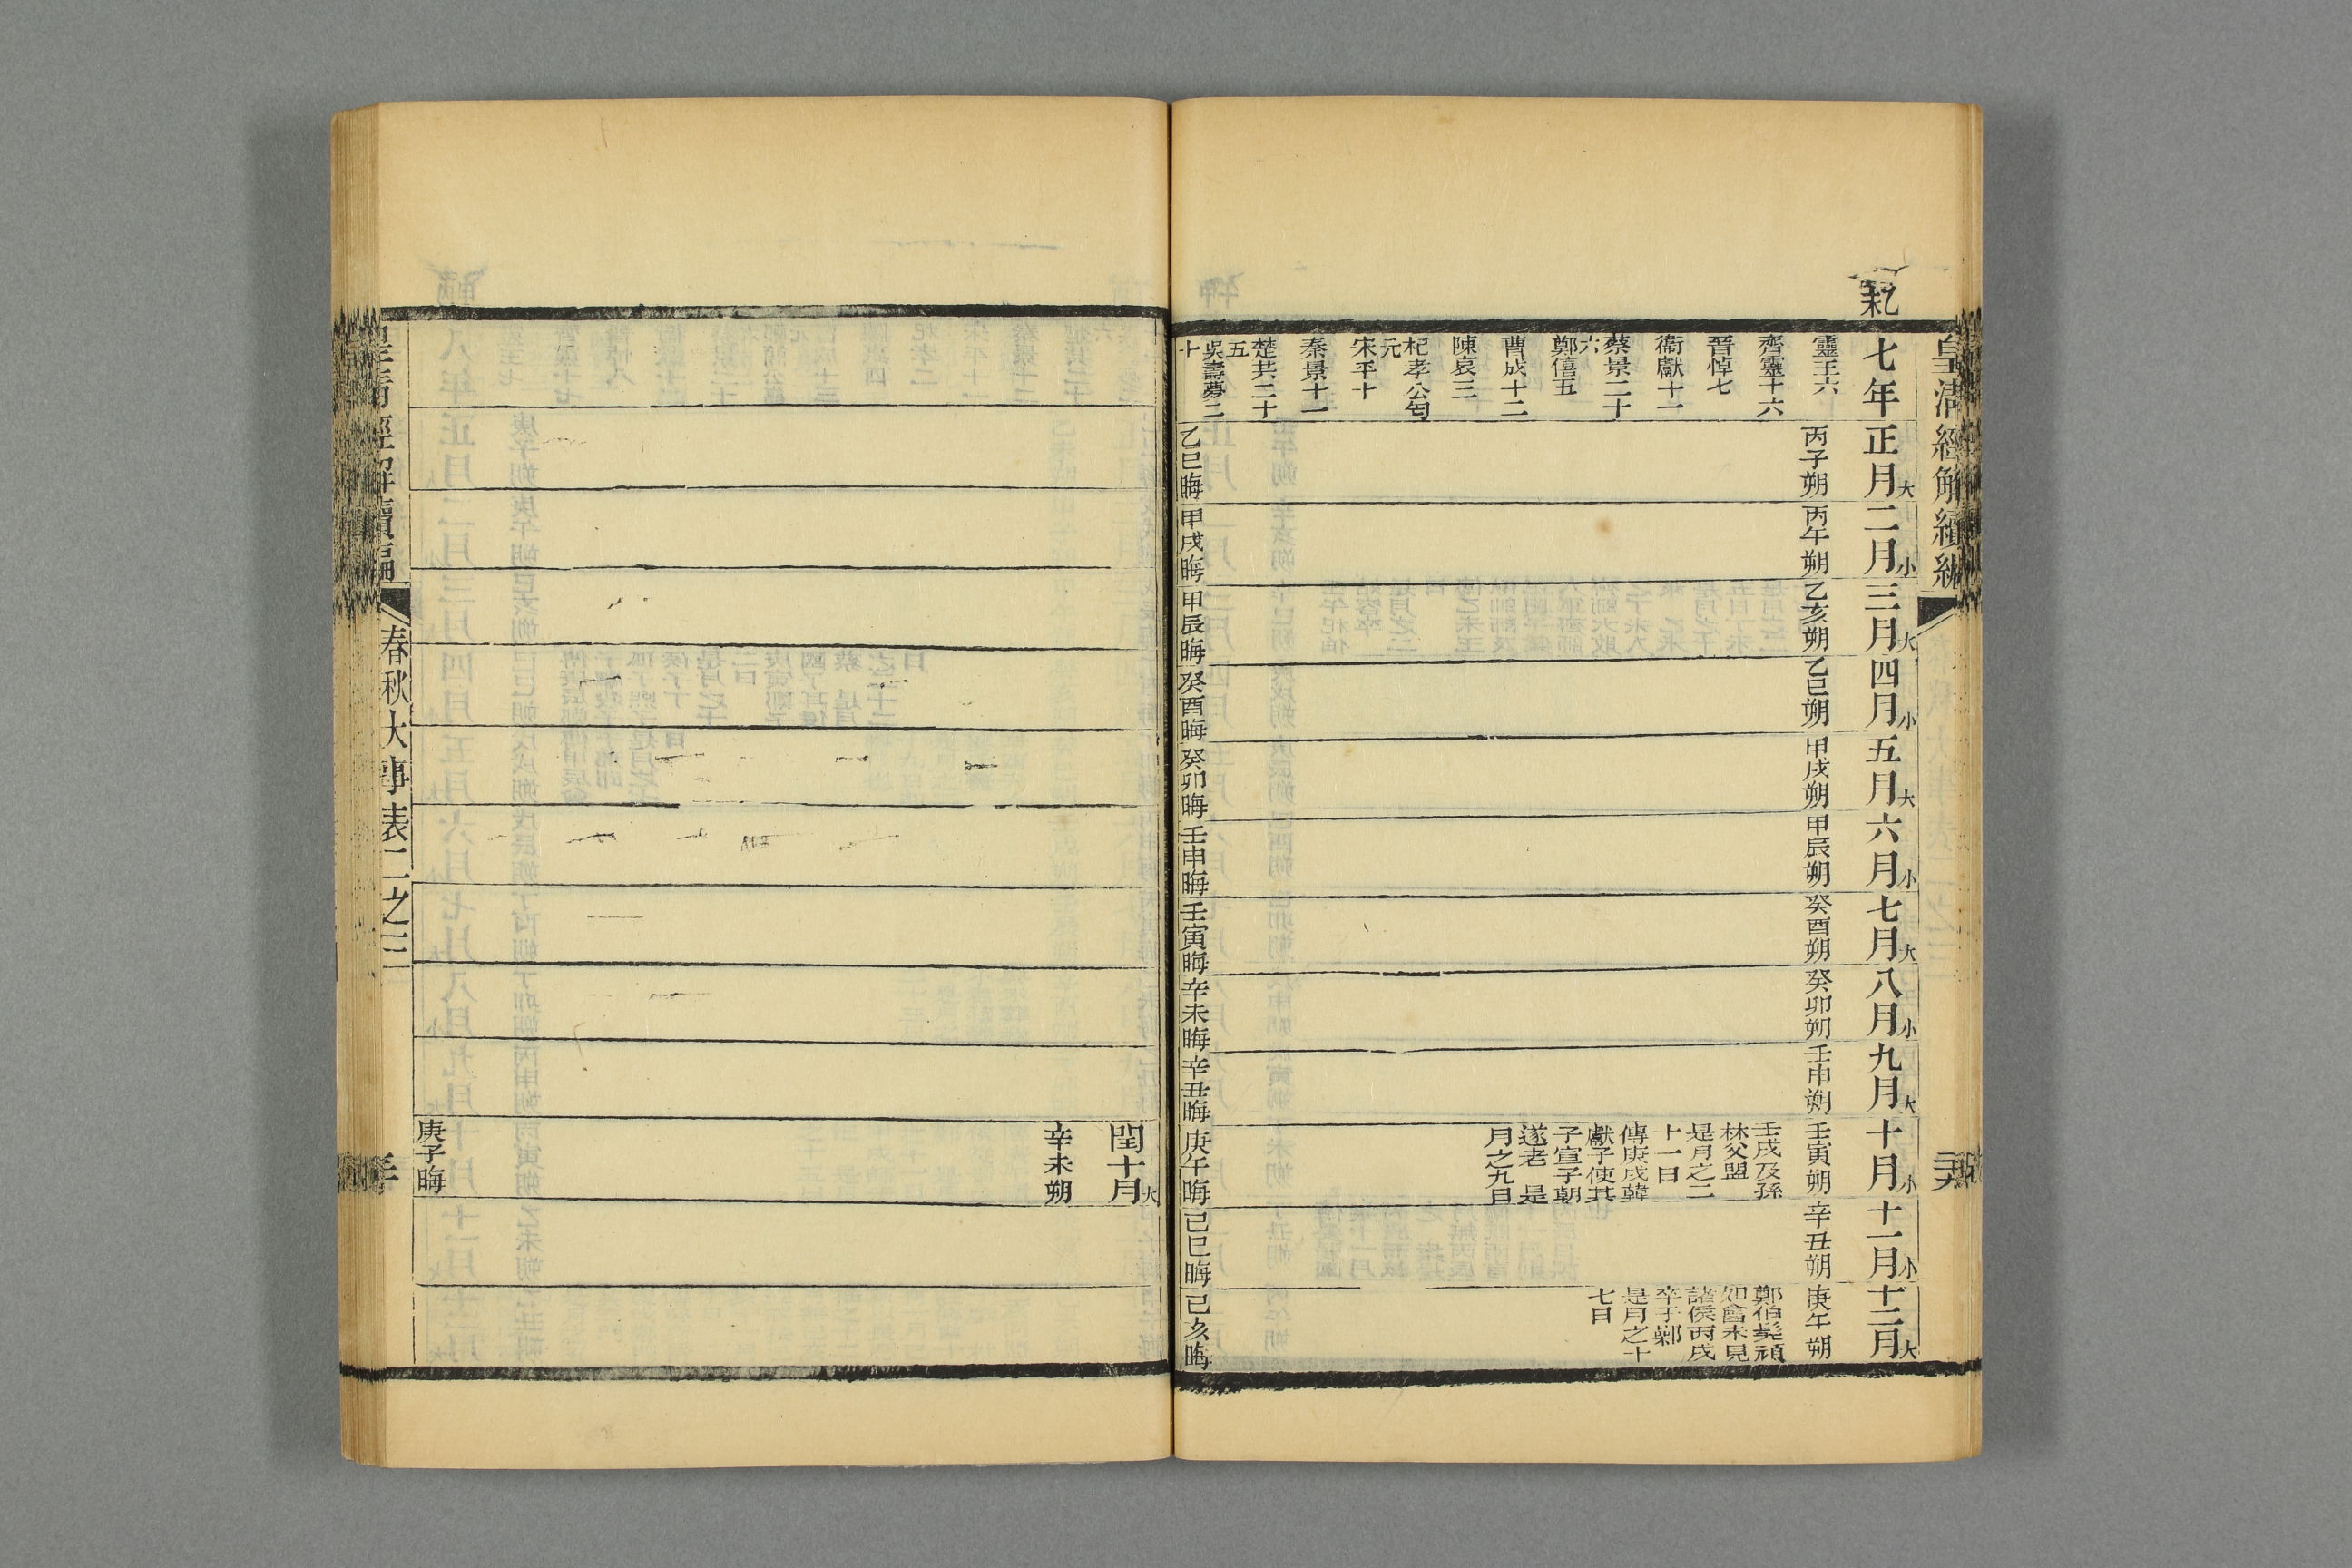 皇淸經解續編
乙未
七年
正月大
二月小
三月大
四月小
五月大
六月小
七月大
八月小
九月大
十月小
十一月小
十二月大
靈王六
齊靈十六
晉悼七
衞獻十一
蔡景二十
六
鄭僖五
曹成十二
陳哀三
杞孝公匄
元
宋平十
秦景十一
楚共二十
五
吳壽夢二
十
丙子朔
乙巳晦
丙午朔
甲戌晦
乙亥朔
甲辰晦
乙巳朔
癸酉晦
甲戌朔
癸卯晦
甲辰朔
壬申晦
癸酉朔
壬寅晦
癸卯朔
辛未晦
壬申朔
辛丑晦
壬寅朔
壬戌及孫
林父盟
是月之二
十一日
傳庚戌韓
獻子使其
子宣子朝
遂老 是
月之九日
庚午晦
辛丑朔
己巳晦
庚午朔
鄭伯髡頑
如會未見
諸侯丙戌
卒于鄵
是月之十
七日
己亥晦
閏十月大
辛未朔
庚子晦
皇淸經解續編
春秋大事表二之三